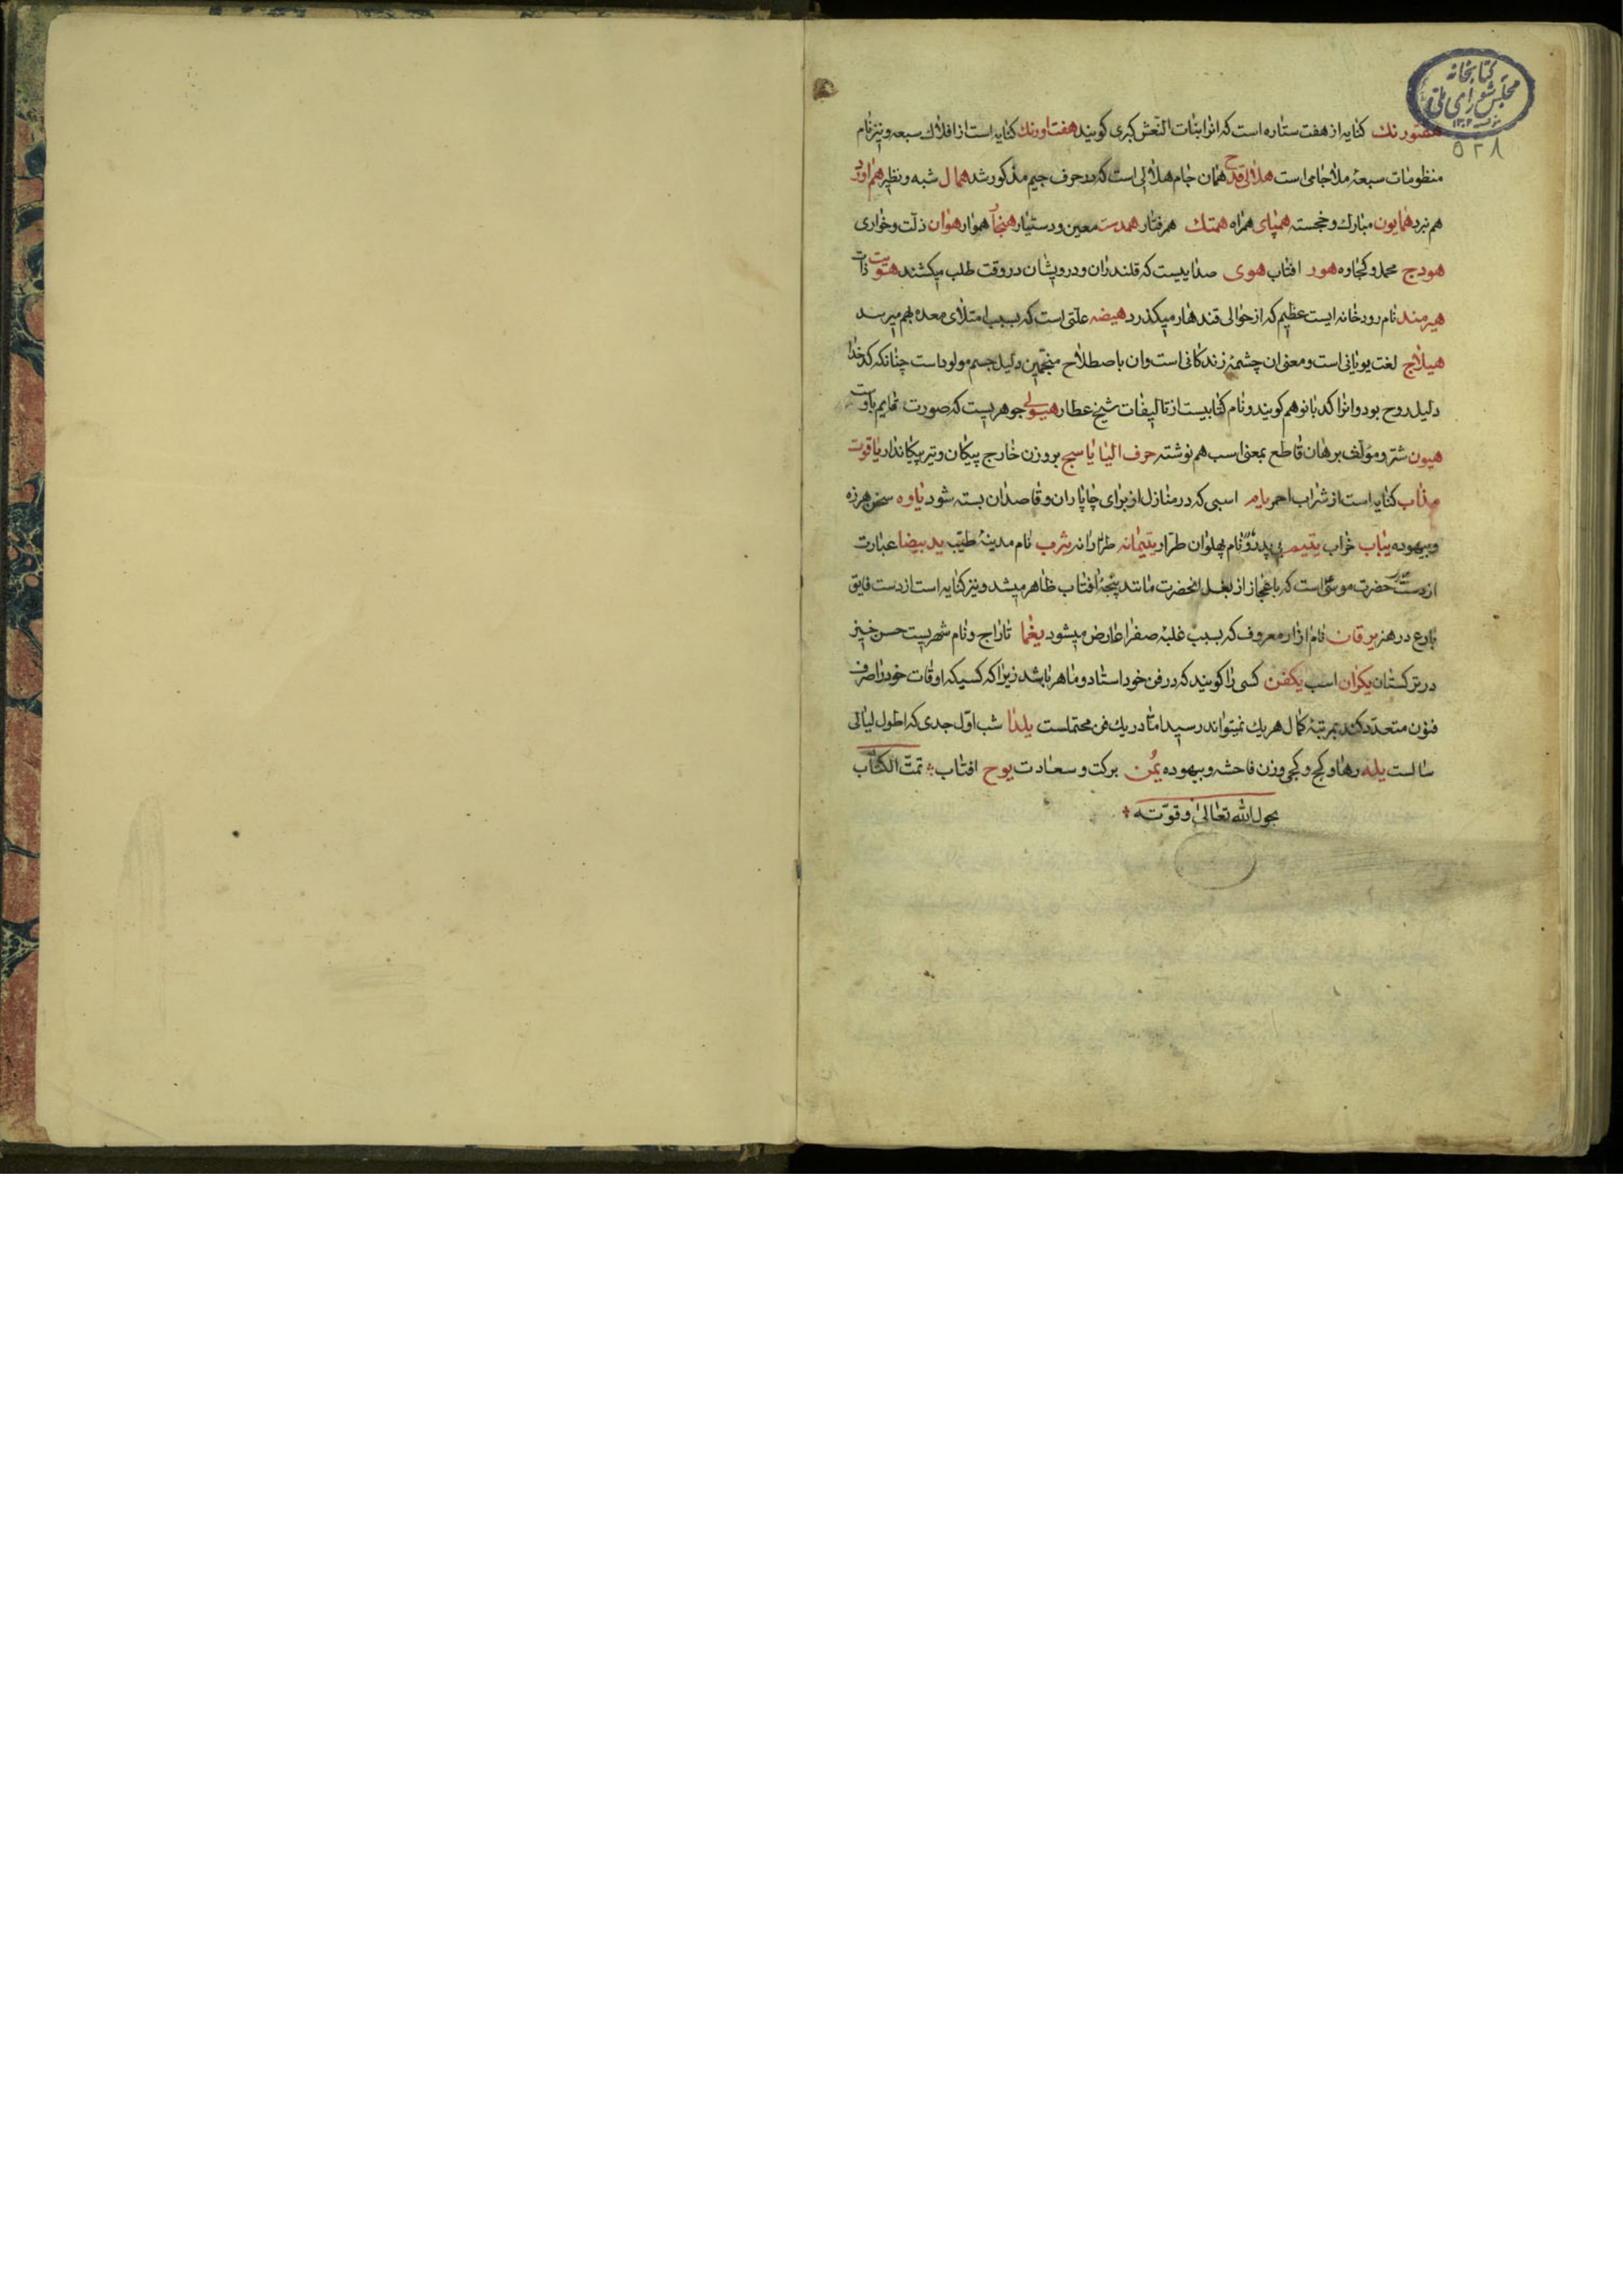 کتابخانه
مجلس شورای ملی
۵۲۸
هفتورنک کنایه از هفت ستاره است که انرا بنات النّعش کبری کویند هفت اورنك کنایه است از افلاك سبعه و نیز نام
منظومات سبعهٔ ملا جامی است هلالی قدح همان جام هلالی است که در حرف جیم مذکور شد همال شبه و نظیر هم اورد
هم نبرد همایون مبارك و خجسته همپای همراه همتك هم رفتار همدست معین و دستیار هنجار هموار هوان ذلّت و خواری
هودج محمل و کجاوه هور افتاب هوی صداییست که قلندران و درویشان در وقت طلب میکشند هویت ذات
هیرمند نام رودخانه ایست عظیم که از حوالی قندهار میکذرد هیضه علّتی است که بسبب امتلای معده بهم میرسد
هیلاج لغت یونانی است و معنی ان چشمهٔ زندکانی است وان باصطلاح منجّمین دلیل جسم مولود است چنانکه کدخدا
دلیل روح بود و انرا کدبانو هم کویند و نام کتابیست از تالیفات شیخ عطار هیولی جوهریست که صورت قایم باوست
هیون شتر و مؤلّف برهان قاطع بمعنی اسب هم نوشته حرف الیا یاسج بر وزن خارج پیکان و تیر پیکاندار یاقوت
مذاب کنایه است از شراب احمر یام اسبی که در منازل از برای چاپاران و قاصدان بسته شود یاوه سخن هرزه
و بیهوده یباب خراب یتیم بی پدر و نام پهلوان طرّار یتیمانه طرّارانه یثرب نام مدینهٔ طیّبه ید بیضا عبارت
از دست حضرت موسی است که باعجاز از بغل انحضرت مانند پنجهٔ افتاب ظاهر میشد و نیز کنایه است از دست فایق
بارع در هنر یرقان نام ازار معروف که بسبب غلبهٔ صفرا عارض میشود یغما تاراج و نام شهریست حسن خیز
در ترکستان یکران اسب یکفن کسی را کویند که در فن خود استاد و ماهر باشد زیرا که کسیکه اوقات خود را صرف
فنون متعدّد کند بمرتبهٔ کمال هریك نمیتواند رسید امّا در یك فن محتملست یلدا شب اوّل جدی که اطول لیالی
سالست یله رها و کج و کجی وزن فاحشه و بیهوده یُمن برکت و سعادت یوح افتاب تمّت الکتاب
بحول الله تعالی و قوّته